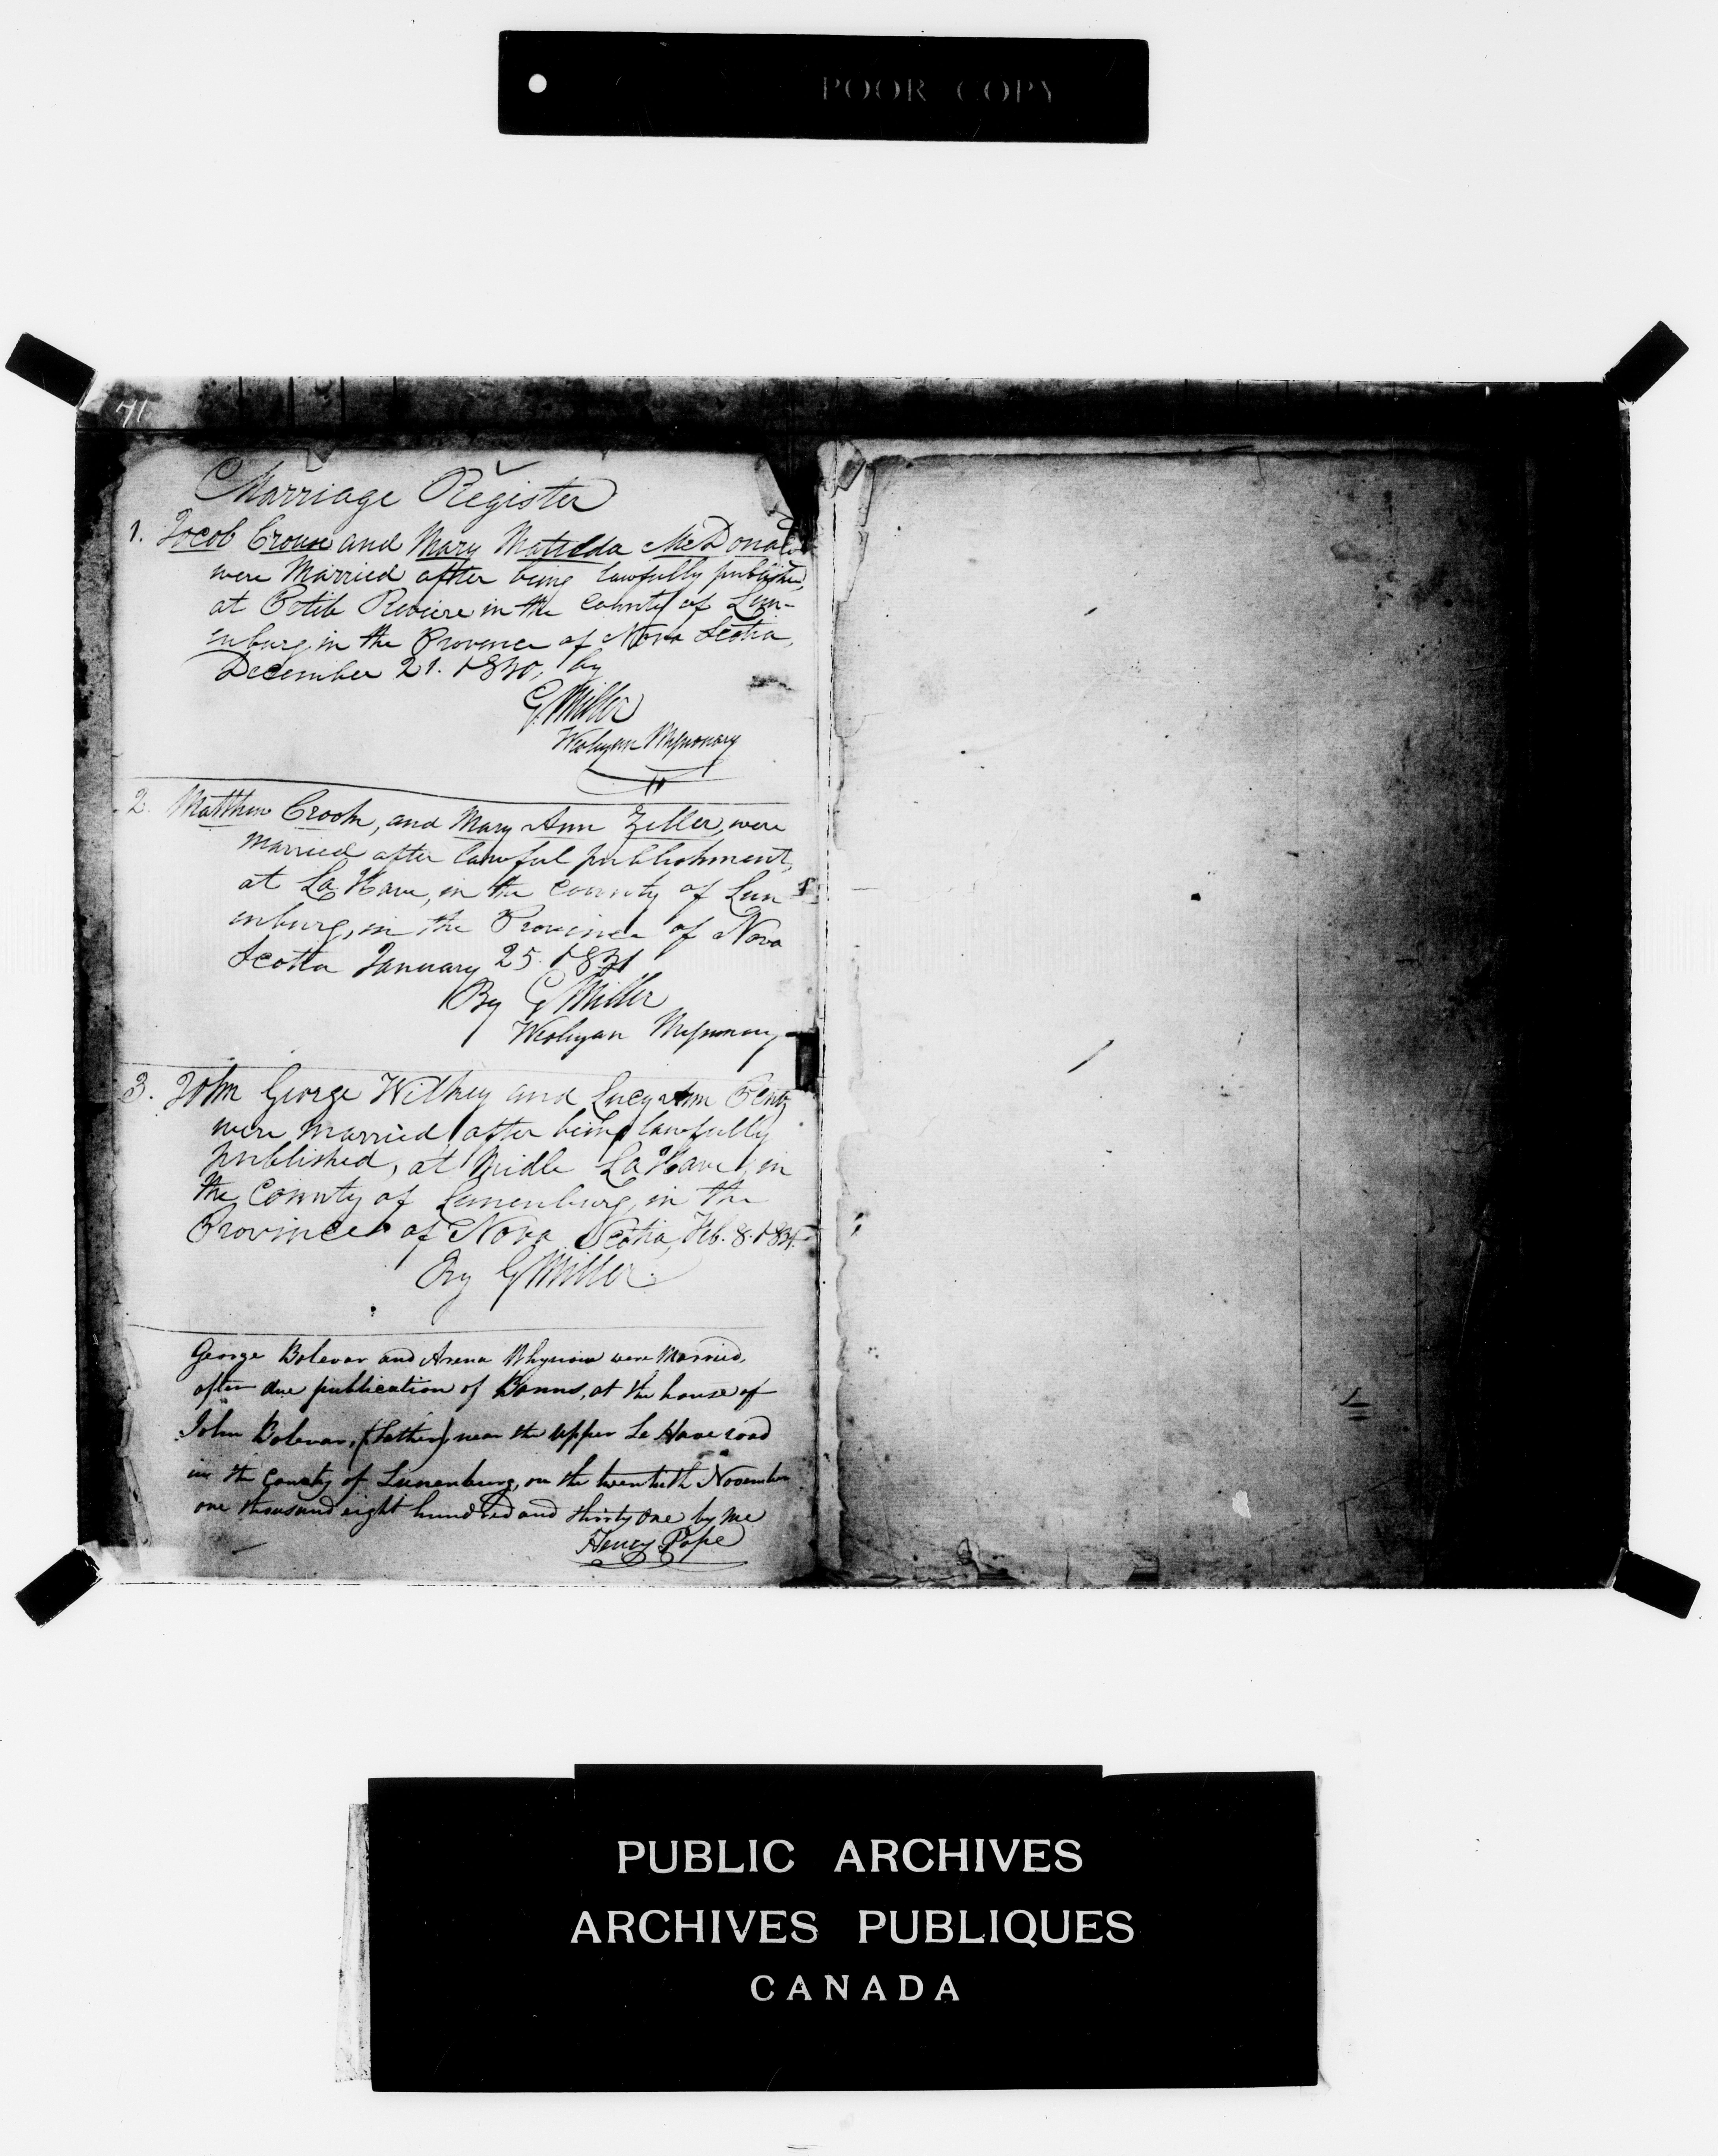 POOR COPY
71
Marriage Register
1. Jacob Crouse and Mary Matilda McDonald
were Married after being lawfully published,
at Petite Reviere in the County of Lun-
enburg, in the Province of Nova Scotia,
December 21. 1830, by
G Miller
Wesleyan Missionary
2. Matthew Crook, and Mary Ann Zeller, were
married after lawful publishment,
at La Have, in the County of Lun
enburg, in the Province of Nova
Scotia January 25. 1831
By G Miller
Wesleyan Missionary
3. John George Withey and Lucy Ann Pentz
were married, after being lawfully
published, at Midle La Have, in
the County of Lunenburg, in the
Province of Nova Scotia, Feb. 8. 1831.
By G Miller.
George Bolevar and Arena were Married,
after due publication of Banns, at the house of
John Bolevar, (Father), near the upper Le Have road
in the County of Lunenburg, on the twentieth November
one thousand eight hundred and thirty one by me
Henry Pope
PUBLIC ARCHIVES
ARCHIVES PUBLIQUES
CANADA